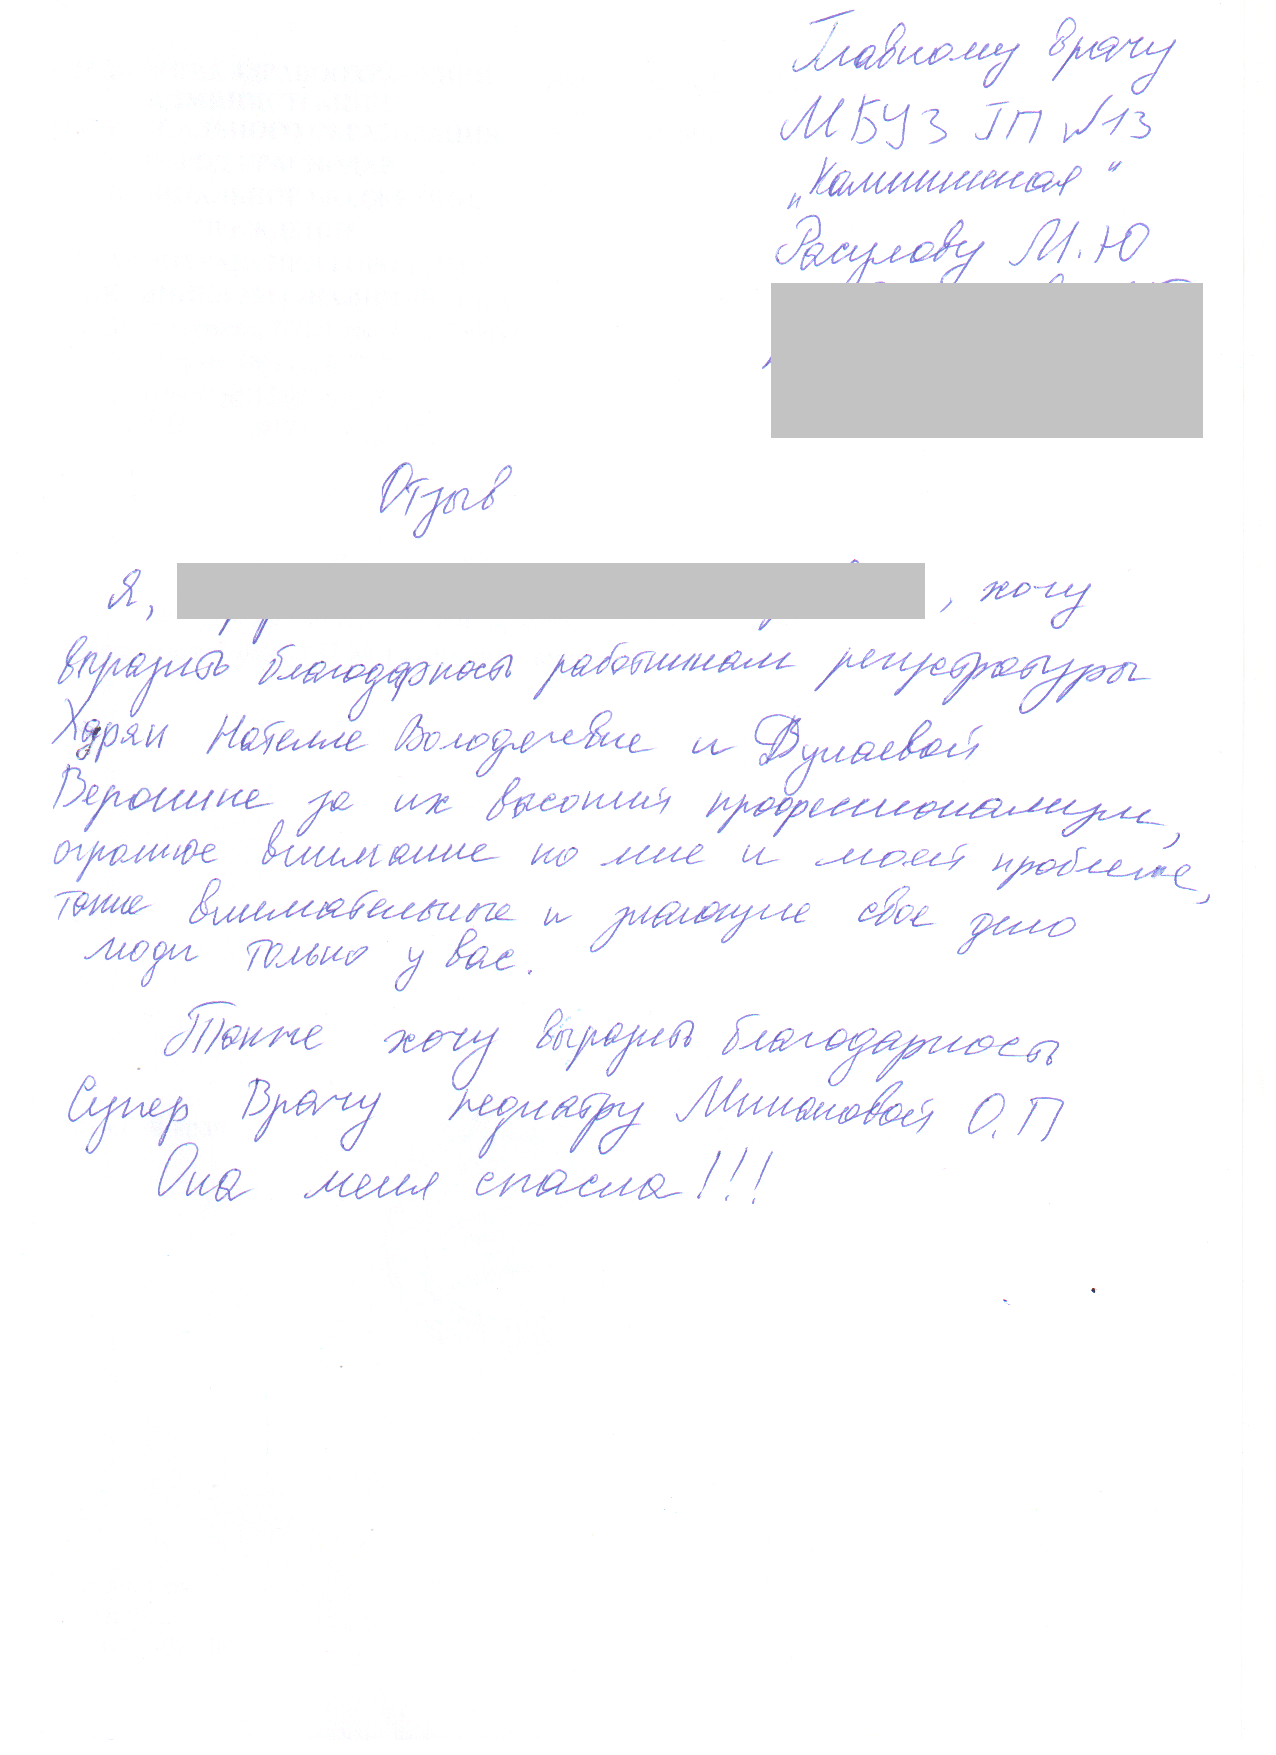 Главному врачу
МБУЗ ГП №13
"Калининская"
Расулову М.Ю
Отзыв
Я, , хочу
выразить благодарность работникам регистратуры
Нателле Володяевне и Дунаевой
Веронике за их высокий профессионализм,
огромное внимание ко мне и моей проблеме,
такие внимательные и знающие свое дело
люди только у вас.
Также хочу выразить благодарность
Супер Врачу педиатру О.П
Она меня спасла!!!